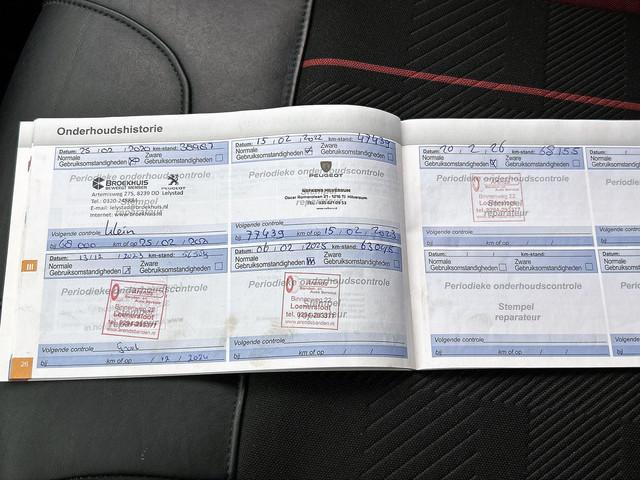 Onderhoudshistorie
Datum: 25 / 02 / 2020 km-stand: 38967
Normale Gebruiksomstandigheden Zware Gebruiksomstandigheden
Periodieke onderhoudscontrole
BROEKHUIS PEUGEOT
BEWEEGT MENSEN Lelystad
Artemisweg 275, 8239 DD Lelystad
E-mail: lelystad@broekhuis.nl
Internet: www.broekhuis.nl
Volgende controle Klein
bij 68 000 km of op 25 / 02 /
Datum: 15 / 02 / 2022 km-stand: 47439
Normale Gebruiksomstandigheden Zware Gebruiksomstandigheden
Periodieke onderhoudscontrole
PEUGEOT
HILVERSUM
Volgende controle
bij 77439 km of op 15 / 02 / 2023
Datum: 20 / 2 / 26 km-stand: 68155
Normale Gebruiksomstandigheden Zware Gebruiksomstandigheden
Periodieke onderhoudscontrole
Stempel
reparateur
Volgende controle
bij km of op / /
Datum:
Normale
Gebruiksomst
Periodi
Volgende contro
bij
III
Datum: 13 / 12 / 2023 km-stand:
Normale Gebruiksomstandigheden Zware Gebruiksomstandigheden
Periodieke onderhoudscontrole
Binnenweg 22
Loenersloot
tel. 0294-295371
Volgende controle Groot
bij km of op / 12 / 2024
Datum: 06 / 02 / 2025 km-stand: 63045
Normale Gebruiksomstandigheden Zware Gebruiksomstandigheden
Periodieke onderhoudscontrole
Binnenweg 22
Loenersloot
tel. 0294-295371
Volgende controle
bij km of op / /
Datum: / / km-stand:
Normale Gebruiksomstandigheden Zware Gebruiksomstandigheden
Periodieke onderhoudscontrole
Stempel
reparateur
Volgende controle
bij km of op / /
Datum:
Normale
Gebruiksomst
Periodi
Volgende contro
bij
26